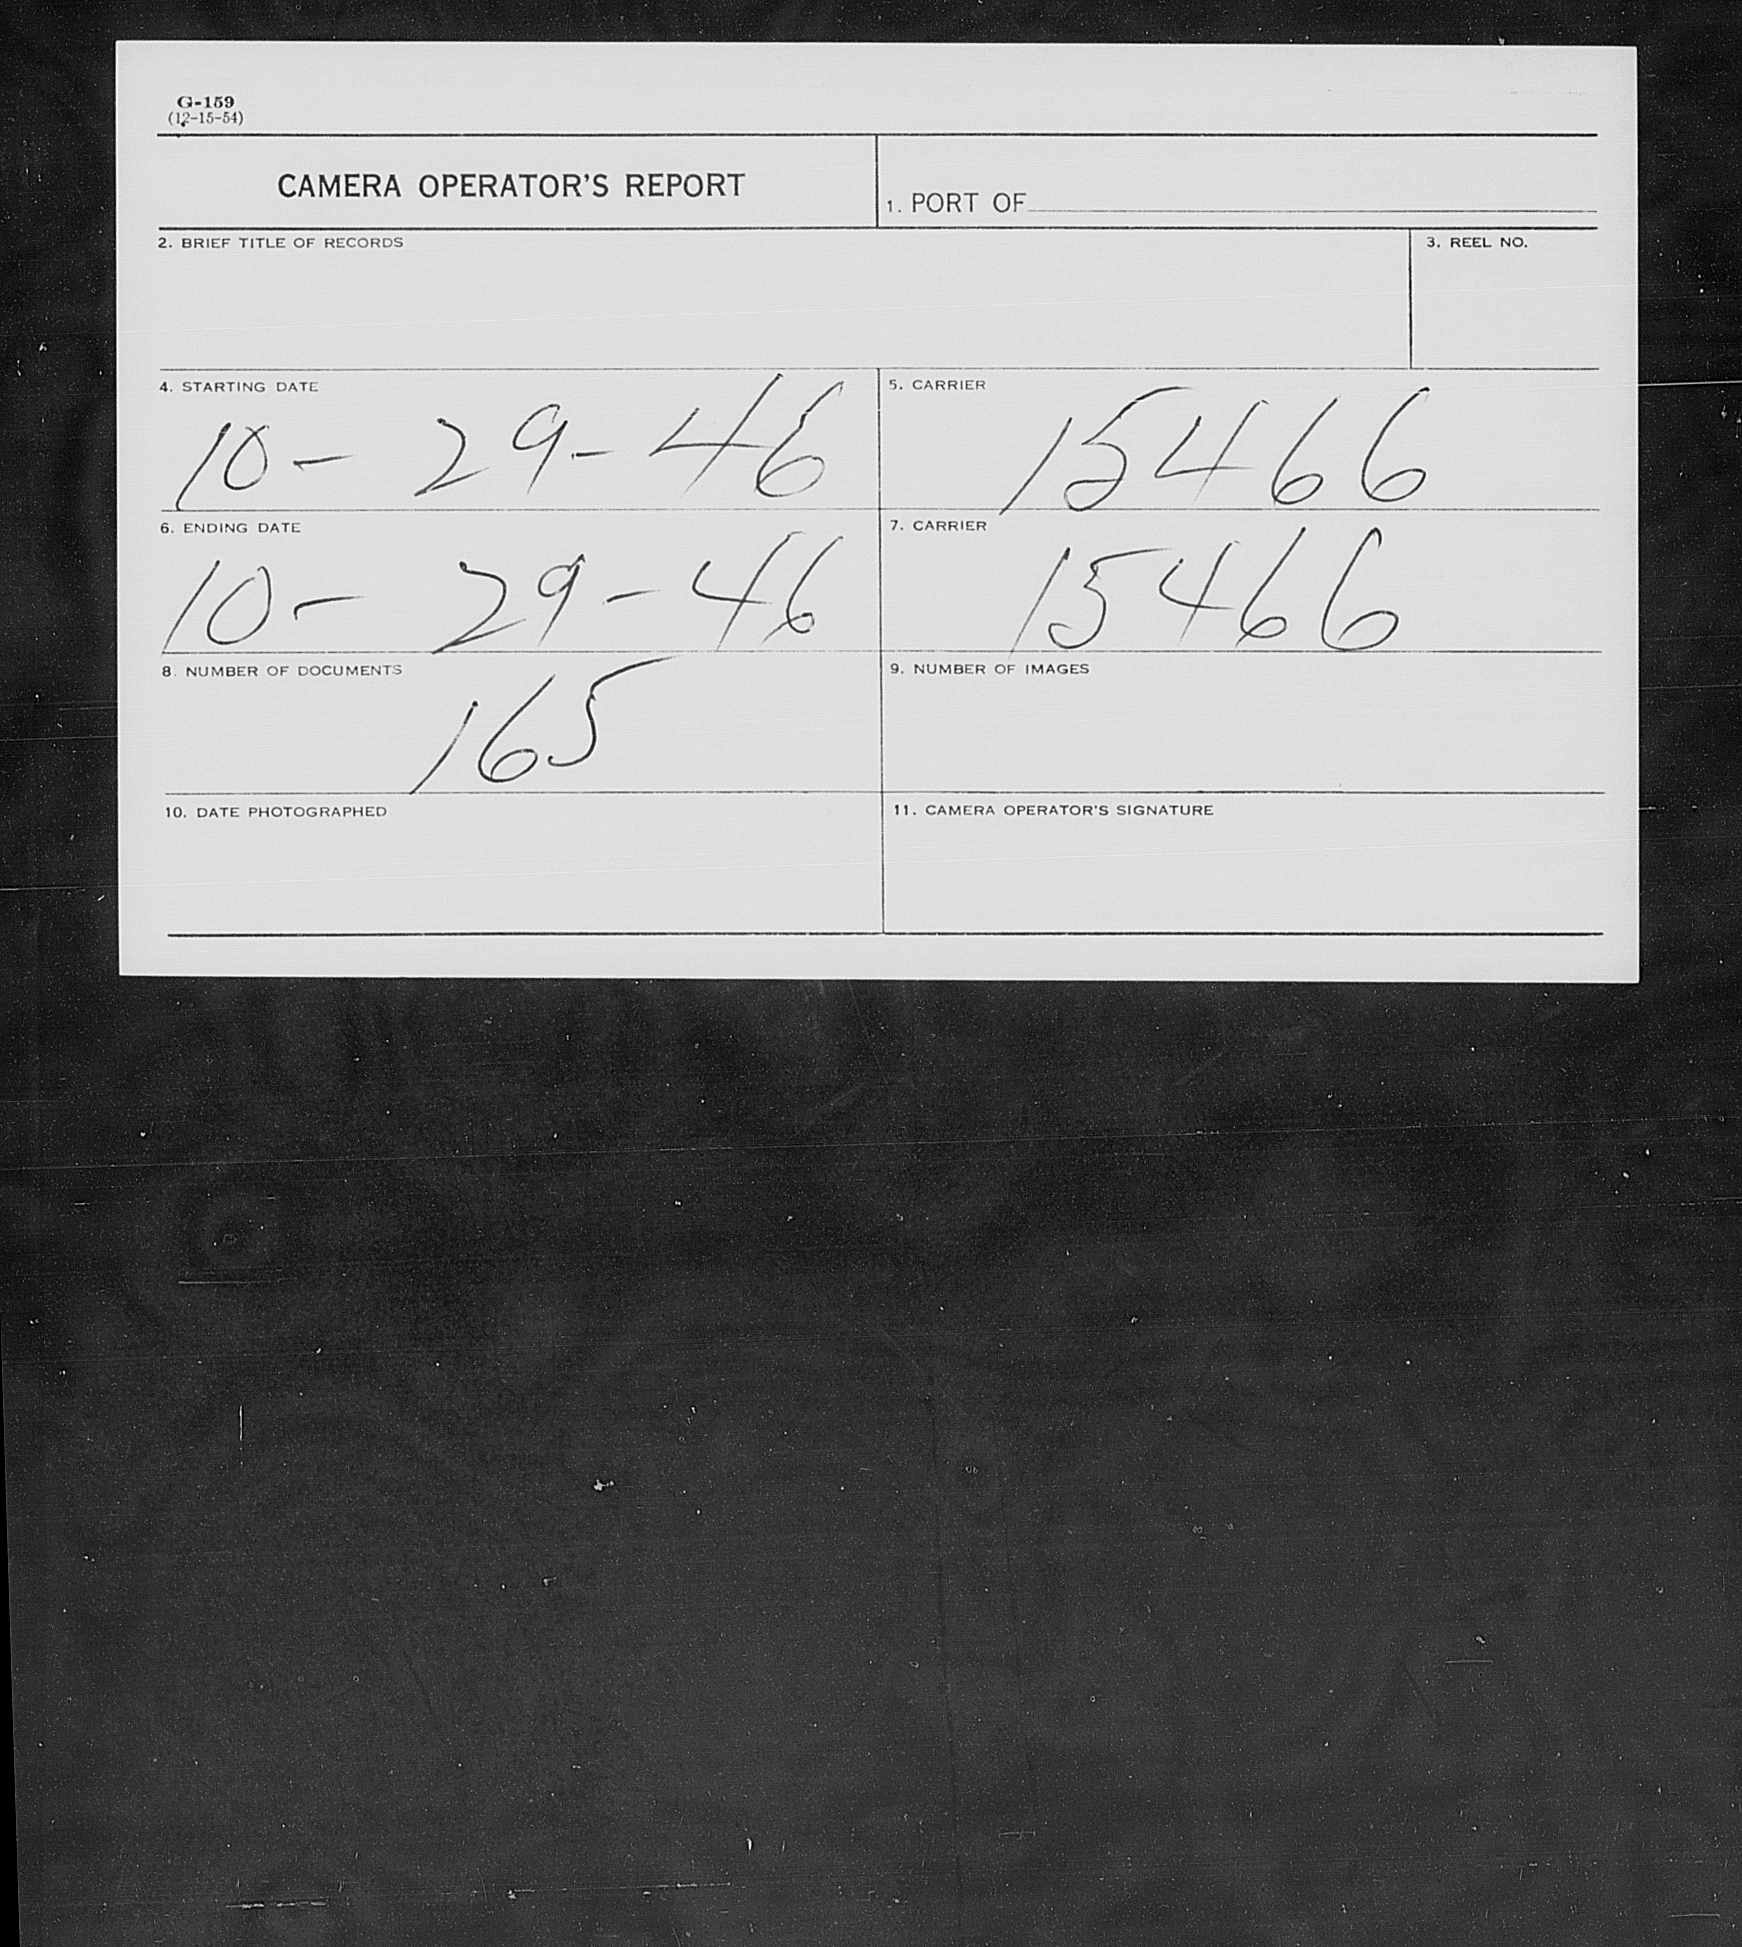 G-159
(12-15-54)
CAMERA OPERATOR'S REPORT
1. PORT OF
2. BRIEF TITLE OF RECORDS
3. REEL NO.
4. STARTING DATE
10- 29-46
5. CARRIER
15466
6. ENDING DATE
10- 29-46
7. CARRIER
15466
8. NUMBER OF DOCUMENTS
165
9. NUMBER OF IMAGES
10. DATE PHOTOGRAPHED
11. CAMERA OPERATOR'S SIGNATURE